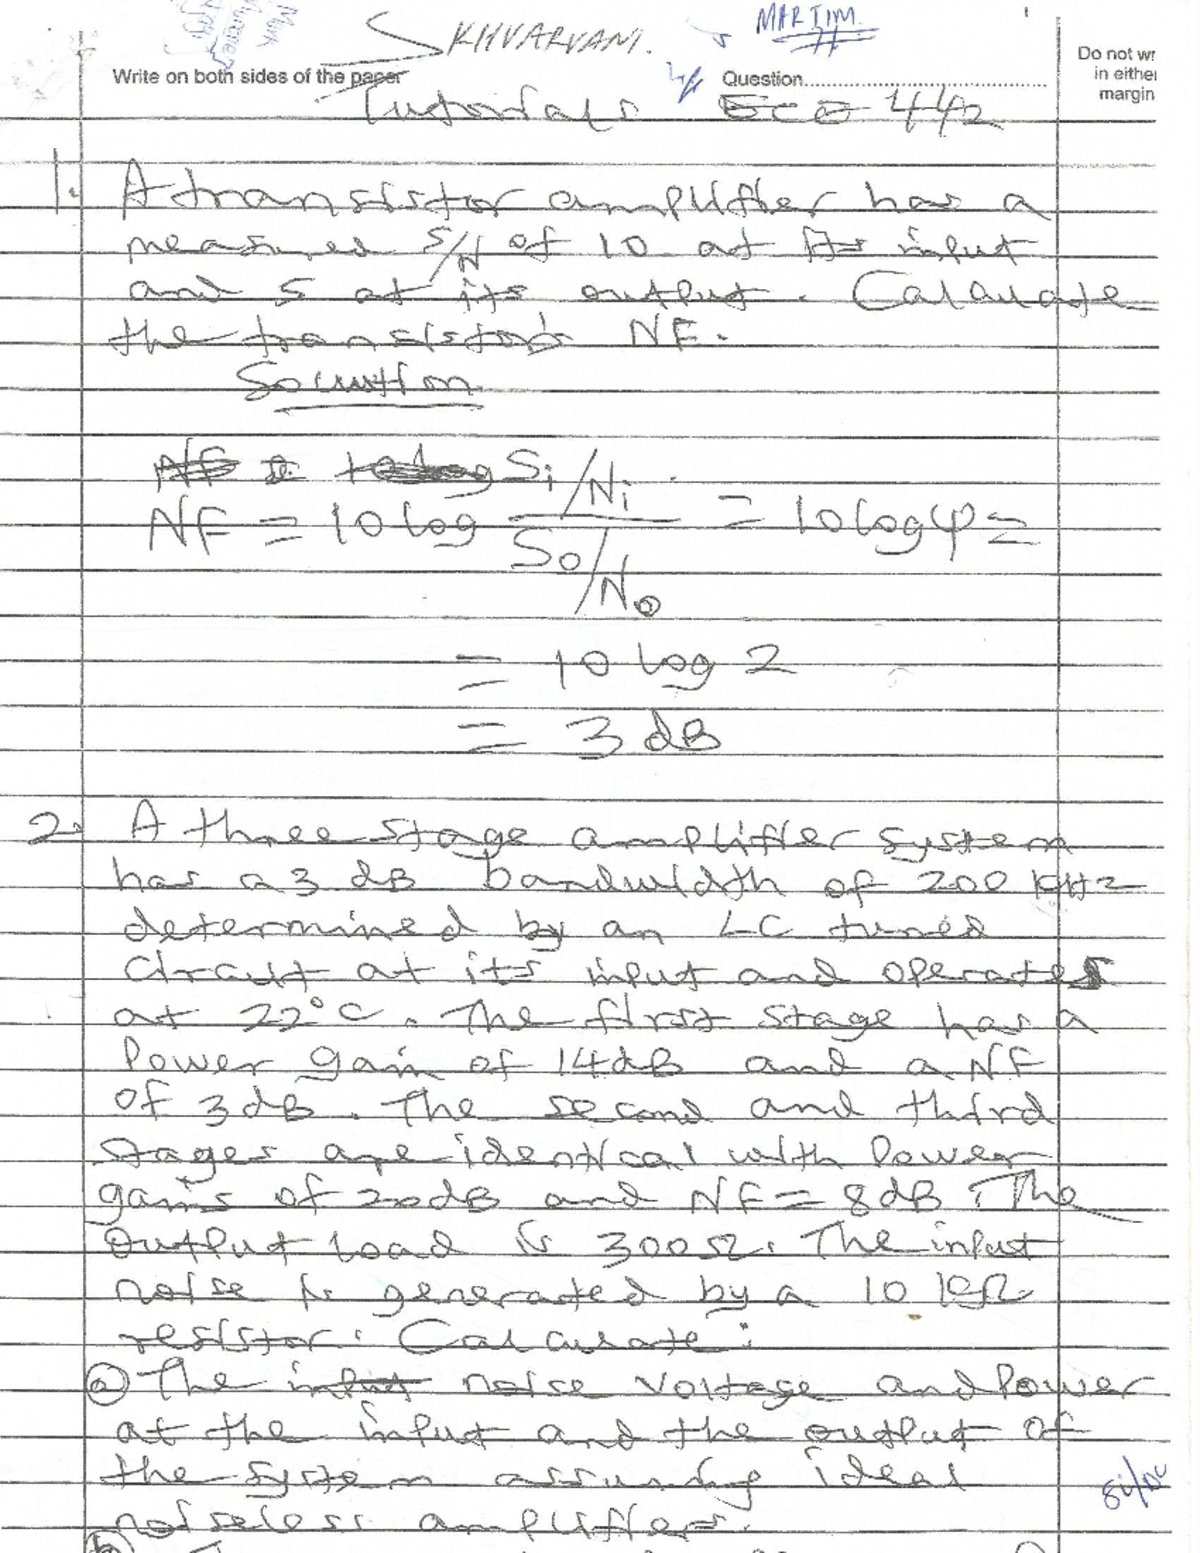 SKHVARVANI.
MARTIM
Write on both sides of the paper
Question
Do not wr
in either
margin
Tutorials ECE 442
1. A transistor amplifier has a
measured S/N of 10 at its input
and 5 at its output. Calculate
the transistor's NF.
Solution
NF = 10 log Si/Ni / So/No = 10 log φ =
= 10 log 2
= 3 dB
2. A three stage amplifier system
has a 3 dB bandwidth of 200 KHz
determined by an LC tuned
circuit at its input and operates
at 22°C. The first stage has a
power gain of 14dB and a NF
of 3dB. The second and third
stages are identical with power
gains of 20dB and NF = 8dB. The
output load is 300Ω. The input
noise is generated by a 10 KΩ
resistor. Calculate:
(a) The noise voltage and power
at the input and the output of
the system assuming ideal
noiseless amplifiers.
Si/No
(b)